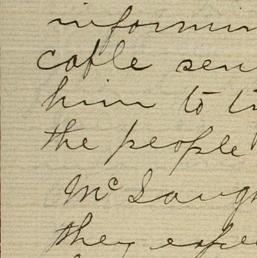 informin
cable sen
him to t
the people
McLaugh
they expe